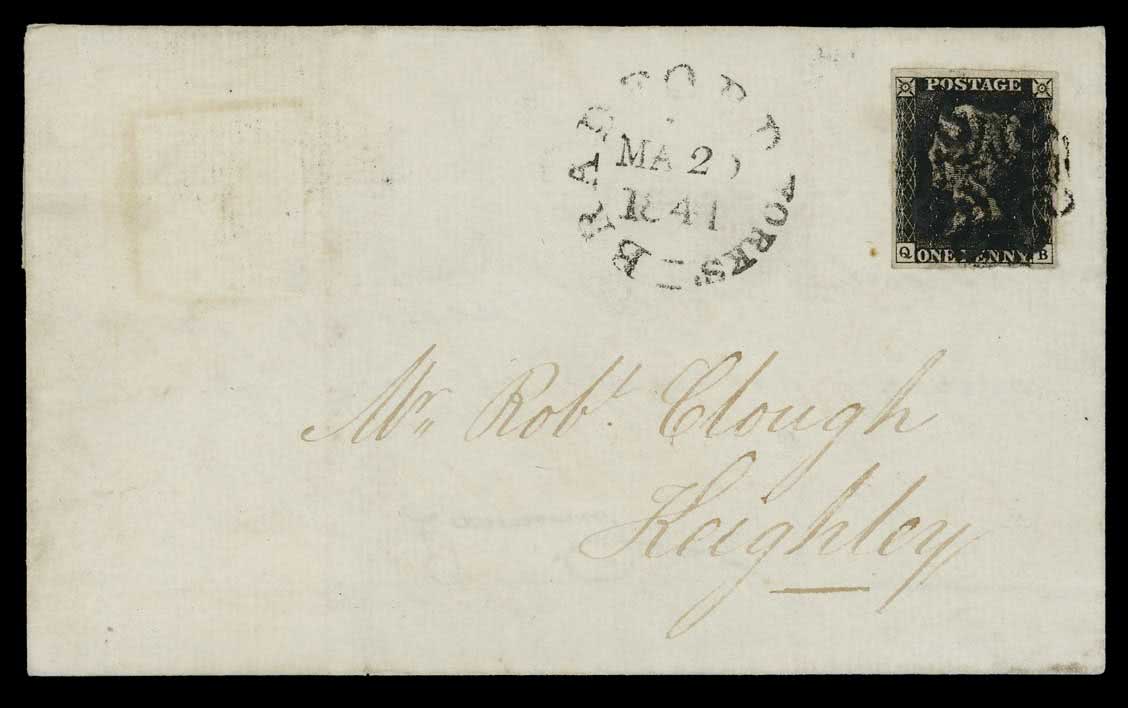 BRADFORD YORKS
MA 2
1841
POSTAGE
Q ONE PENNY B
Mr Robt. Clough
Keighley